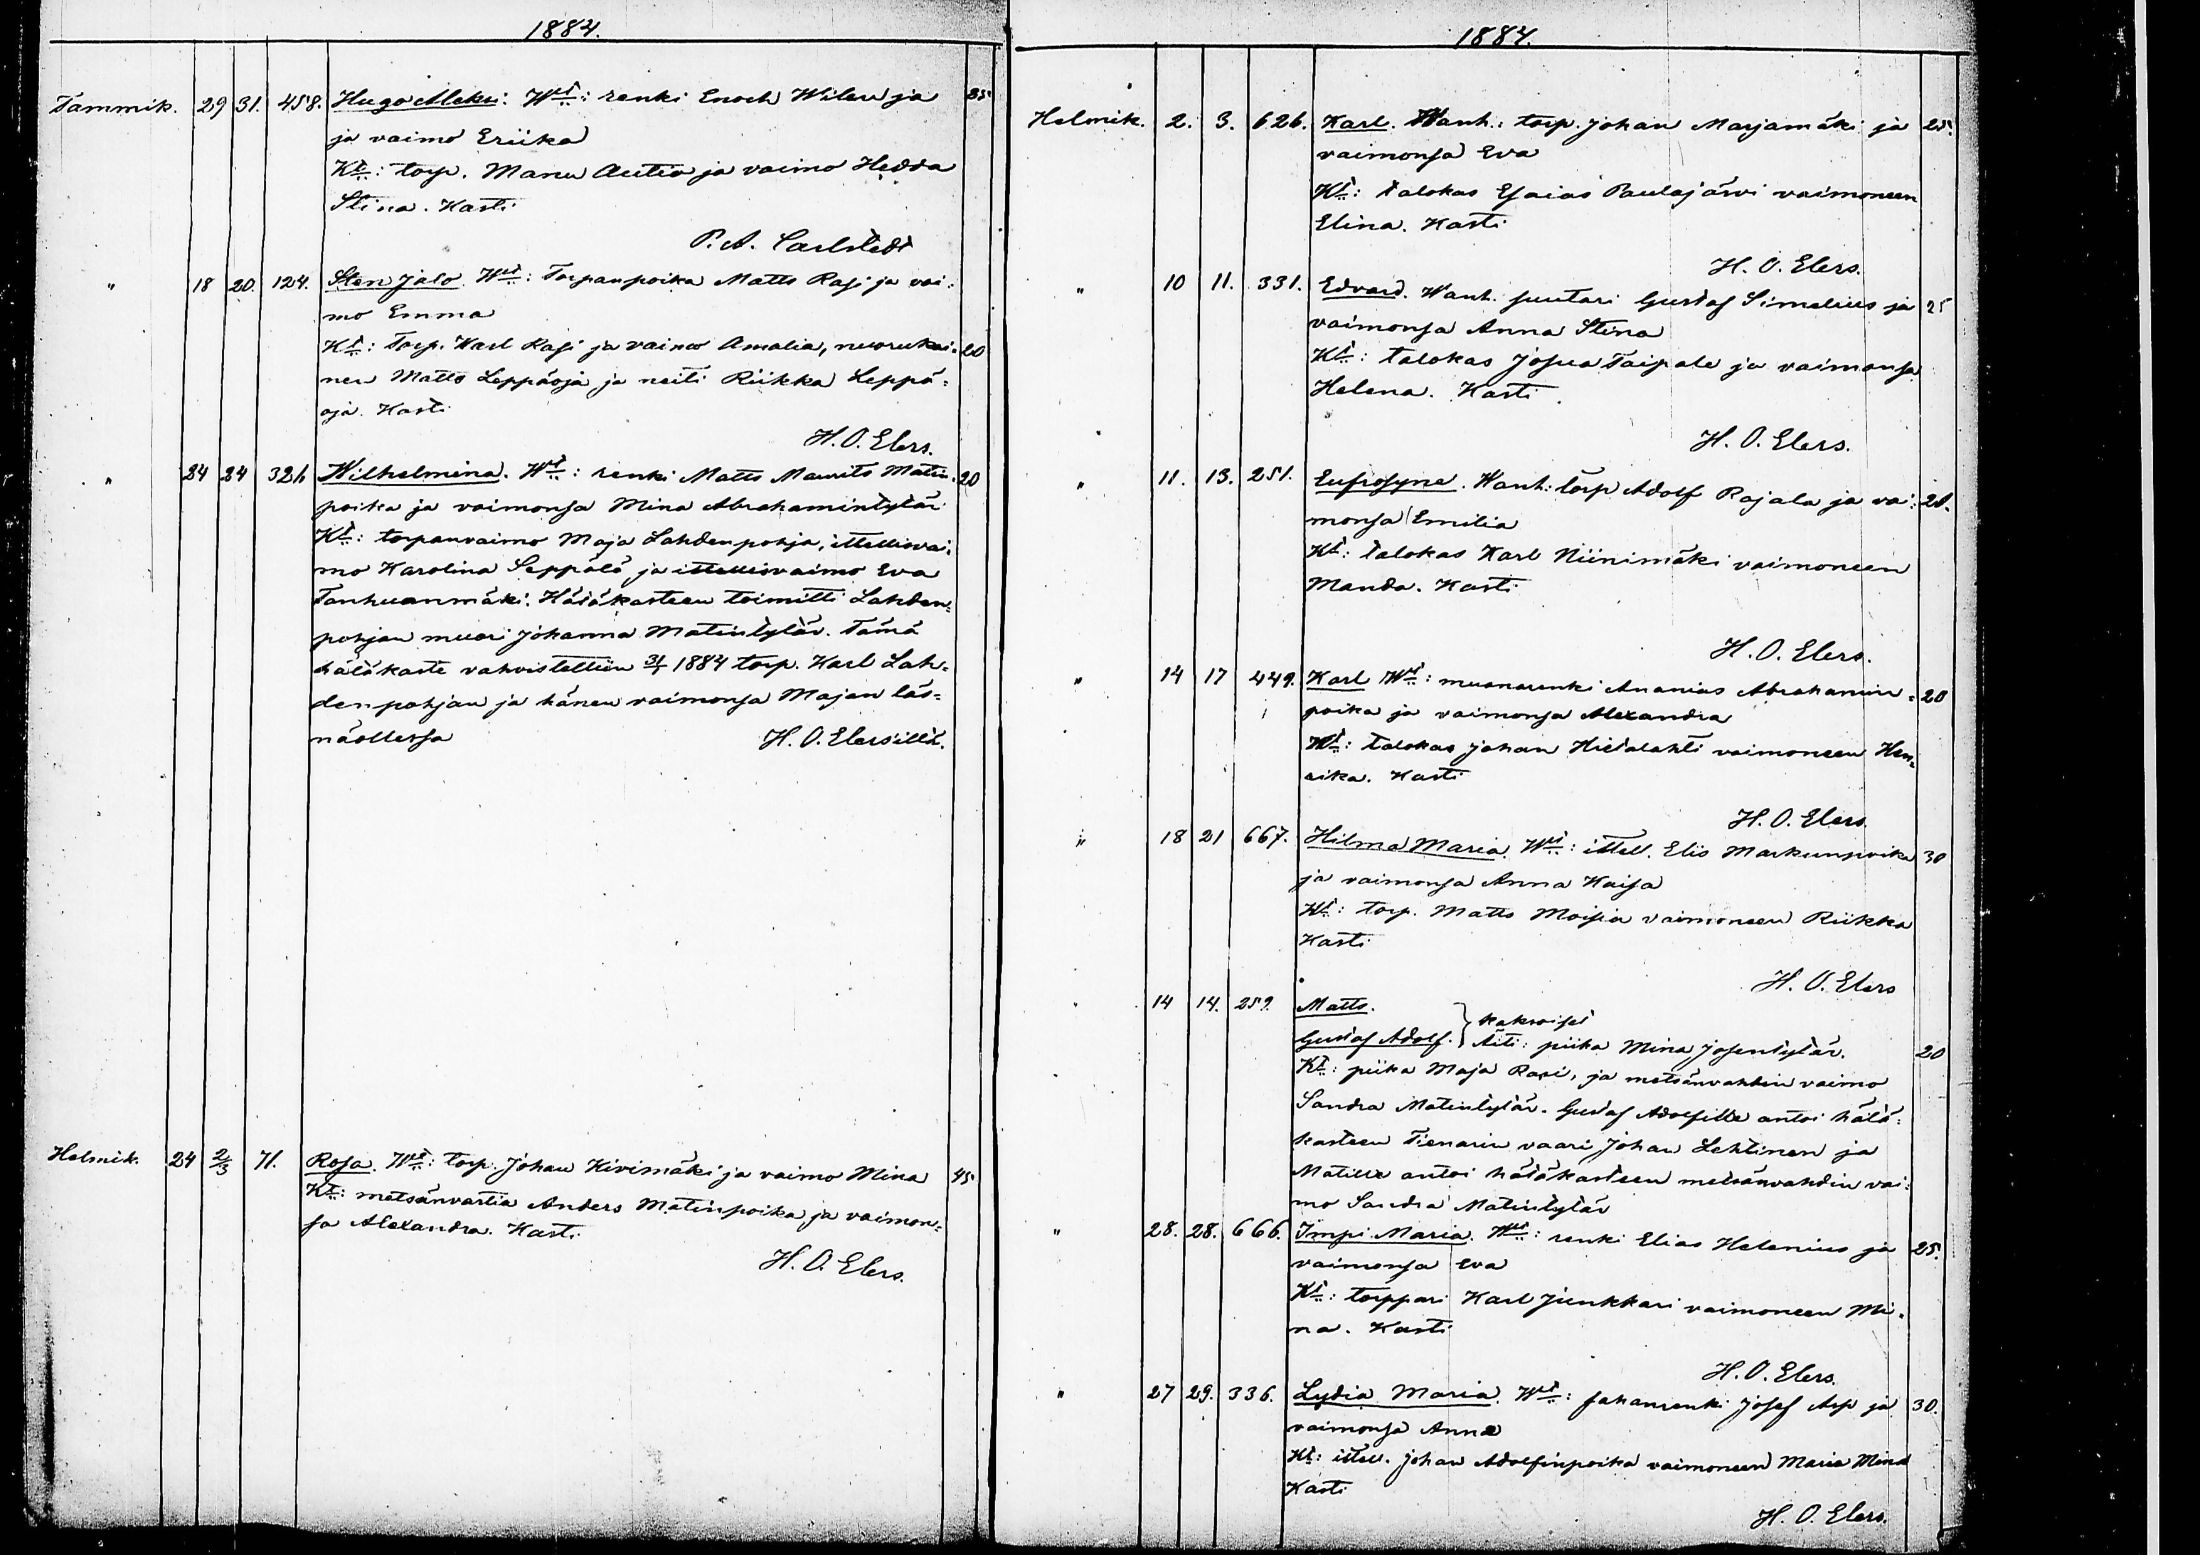 1884.
Tammik. 29 31. 458. Hugo Aleksi. Wmt: renki Enoch Wilen ja 25
ja vaimo Eriika
Kt: torp. Manu Autio ja vaimo Hedda
Stina. Kasti
P. A. Carlstedt
" 18 20. 124. Sten Jalo. Wmt: Torpanpoika Matts Rasi ja vai=
mo Emma
Kt: Torp. Karl Rasi ja vaimo Amalia, nuorukai= 20
nen Matts Leppäoja ja neiti Riikka Leppä=
oja. Kasti
H. O. Elers.
" 24 24 326 Wilhelmina. Wmt: renki Matts Maurits Matin= 20
poika ja vaimonsa Mina Abrahamintytär
Kt: torpanvaimo Maja Lahdenpohja, ittellisvai=
mo Karolina Seppälä ja ittellisvaimo Eva
Tanhuanmäki. Hätäkasteen toimitti Lahden=
pohjan muori Johanna Matintytär. Tämä
hätäkaste vahvistettiin 31/1 1884 torp. Karl Lah=
denpohjan ja hänen vaimonsa Majan läs=
näollessa H. O. Elersiltä.
Helmik. 24 2/3 71. Rosa. Wmt: torp. Johan Kivimäki ja vaimo Mina 45
Kt: metsänvartia Anders Matinpoika ja vaimon=
sa Alexandra. Kasti
H. O. Elers.
1884.
Helmik. 2. 3. 626. Karl. Wanh.: torp. Johan Marjamäki ja 25.
vaimonsa Eva
Kt: talokas Esaias Paulajärvi vaimoneen
Elina. Kasti
H. O. Elers.
" 10 11. 331. Edvard. Wanh. suutari Gustaf Simelius ja 25
vaimonsa Anna Stina
Kt: talokas Josua Taipale ja vaimonsa
Helena. Kasti
H. O. Elers.
" 11. 13. 251. Eufrosyne. Wanh: torp Adolf Rajala ja vai= 20.
monsa Emilia
Kt: talokas Karl Niinimäki vaimoneen
Manda. Kasti
H. O. Elers.
" 14 17 449. Karl Wmt: muonarenki Ananias Abrahamin= 20
poika ja vaimonsa Alexandra
Kt: talokas Johan Hietalahti vaimoneen Hen=
rika. Kasti
H. O. Elers
" 18 21 667. Hilma Maria. Wmt: ittell. Elis Markunpoika 30
ja vaimonsa Anna Kaisa
Kt: torp. Matts Moisia vaimoneen Riikka
Kasti
H. O. Elers
14 14. 259. Matts.
kaksoiset
Gustaf Adolf. Äiti: piika Mina Josentytär. 20
Kt: piika Maja Rasi, ja metsänvahdin vaimo
Sandra Matintytär. Gustaf Adolfille antoi hätä=
kasteen Tienarin vaari Johan Lehtinen ja
Matille antoi hätäkasteen metsänvahdin vai=
mo Sandra Matintytär
" 28. 28. 666. Impi Maria. Wmt: renki Elias Helenius ja 25.
vaimonsa Eva
Kt: torppari Karl Junkkari vaimoneen Mi=
na. Kasti
H. O. Elers.
" 27 29. 336. Lydia Maria. Wmt: sahanrenki Josef Arp ja 30.
vaimonsa Anna
Kt: ittell. Johan Adolfinpoika vaimoneen Maria Mina
Kasti
H. O. Elers.